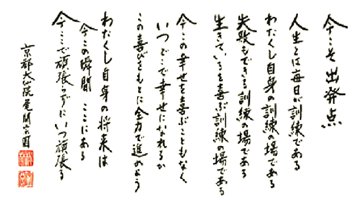 今こそ出発点
人生とは毎日が訓練である
わたくし自身の訓練の場である
失敗もできる訓練の場である
生きているを喜ぶ訓練の場である
今この幸せを喜ぶこともなく
いつどこで幸せになれるか
この喜びをもとに全力で進めよう
わたくし自身の将来は
今この瞬間ここにある
今ここで頑張らずにいつ頑張る
京都大仙院尾関宗園